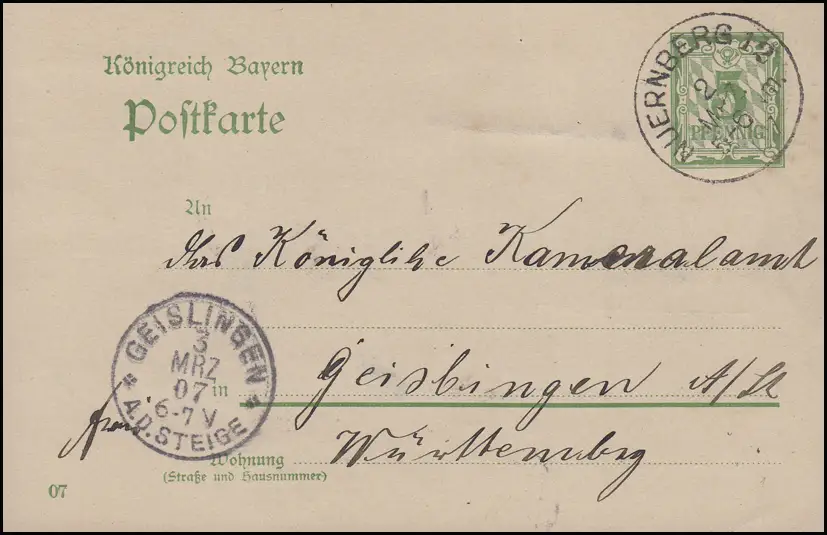 Königreich Bayern
Postkarte
NUERNBERG 12
2
MRZ
5
PFENNIG
An
das Königliche Kameralamt
GEISLINGEN
3
MRZ
07
6-7 V
A.D. STEIGE
in
Geislingen A/St
Württemberg
Wohnung
(Straße und Hausnummer)
07